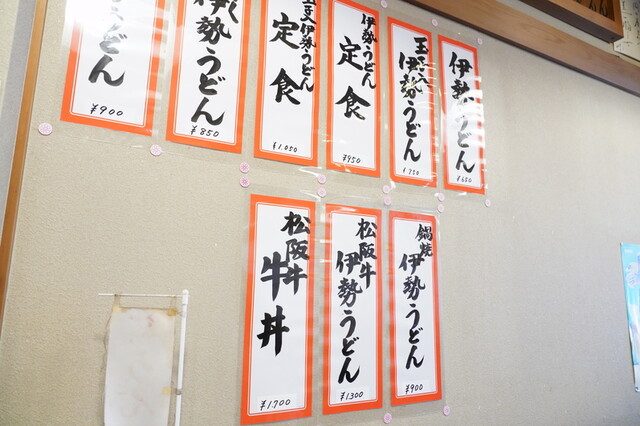 伊勢うどん
¥650
玉子入
伊勢うどん
¥750
伊勢うどん
定食
¥950
玉子入伊勢うどん
定食
¥1,050
く
伊勢うどん
¥850
うどん
¥900
鍋焼
伊勢うどん
¥900
松阪牛
伊勢うどん
¥1300
松阪牛
牛丼
¥1700